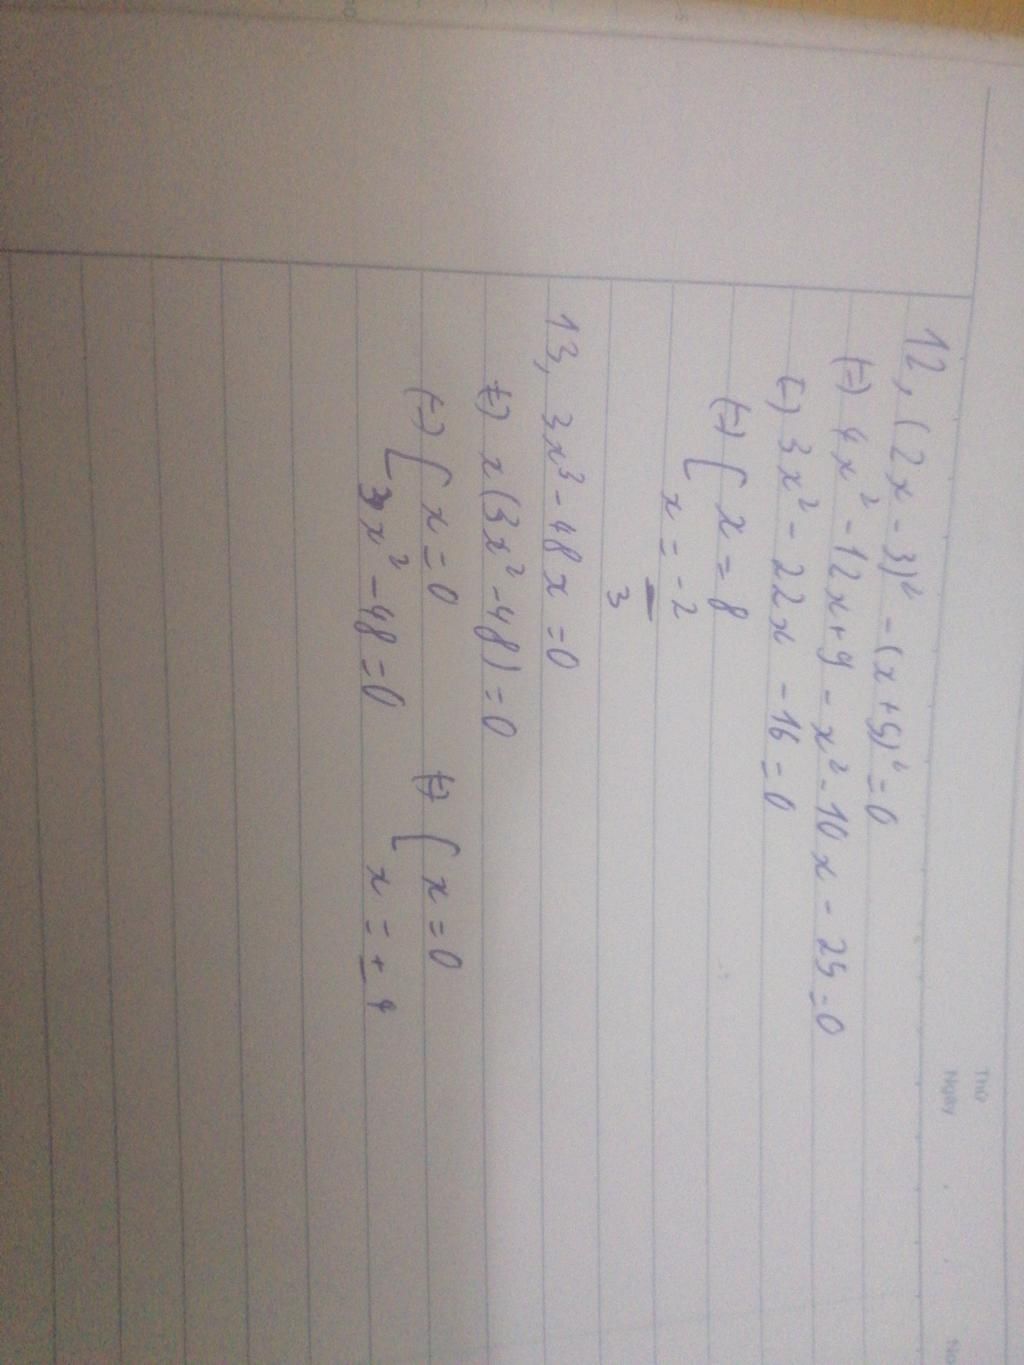 Thứ
Ngày
No
12, (2x - 3)² - (x + 5)² = 0
(=) 4x² - 12x + 9 - x² - 10x - 25 = 0
(=) 3x² - 22x - 16 = 0
(=) [ x = 8
x = -2
3
13, 3x³ - 48x = 0
(=) x(3x² - 48) = 0
(=) [ x = 0 (=) [ x = 0
3x² - 48 = 0 x = ± 4